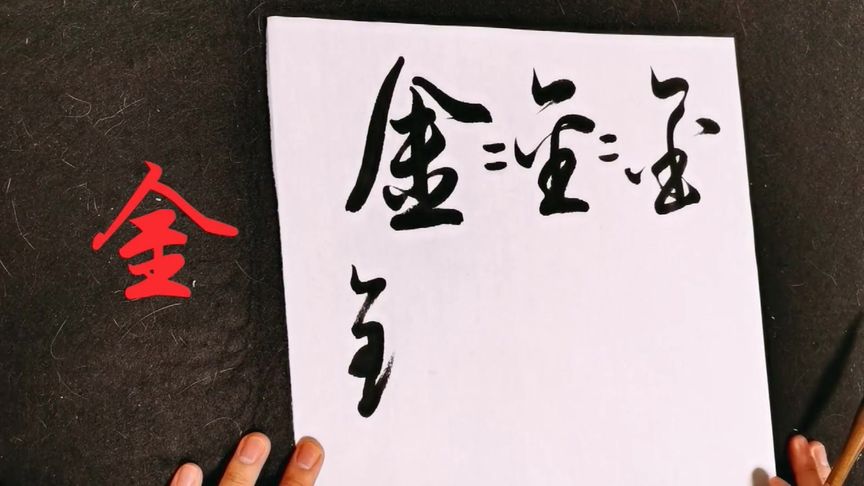 金
金=金=金
金